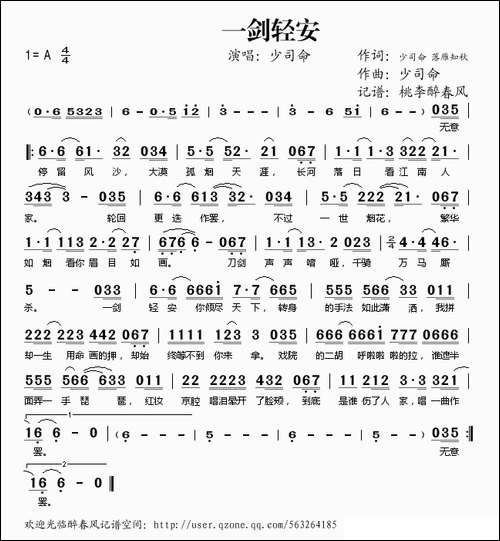 一剑轻安
1= A 4/4
演唱：少司命
作词：少司命 落雁知秋
作曲：少司命
记谱：桃李醉春风
(0·6 5323 | 6 - 0·5 i2 | 3 - - - | 3 - 6 5i | 6 - -) 035 |
无意
|: 6·6 61· 32 034 | 5·5 52· 21 067 | 1·1 1·3 322 21· |
停留 风 沙，大漠 孤烟 天 涯，长河 落日 看江南 人
343 3 - 035 | 6·6 613 32· 034 | 5·5 222 21· 067 |
家。 轮回 更迭 作罢， 不过 一世 烟花， 繁华
1·1 113 2·2 27 | 6766 - 067 | 1·1 13· 2 023 | 4·4 46· |
如烟 看你眉目如 画。 刀剑 声声 喑哑，千骑 万马 厮
5 - - 033 | 6·6 6661 7·7 735 | 5·5 555 5 022 |
杀。 一剑 轻安 你倾尽 天下，转身 的手法 如此潇 洒，我拼
222 2223 442 067 | 1111 123 3 03 | 666 6661 777 0666 |
却一生 用命 画的押，却始 终等不到 你来 拿。戏院 的二胡 呼啦啦 啦的拉，谁遮半
555 566 633 011 | 22 2223 432 067 | 11 212 3·3 321 |
面弄一 手 琵 琶，红妆 京腔 唱泪晕开 了脸颊，到底 是谁 伤了人 家，唱一曲作
1
16 6 - 0 | (6 - - - | 5 - - - | 6 - - - | 5 - -) 035 :|
罢。 无意
2
16 6 - 0 ||
罢。
欢迎光临醉春风记谱空间：http://user.qzone.qq.com/563264185